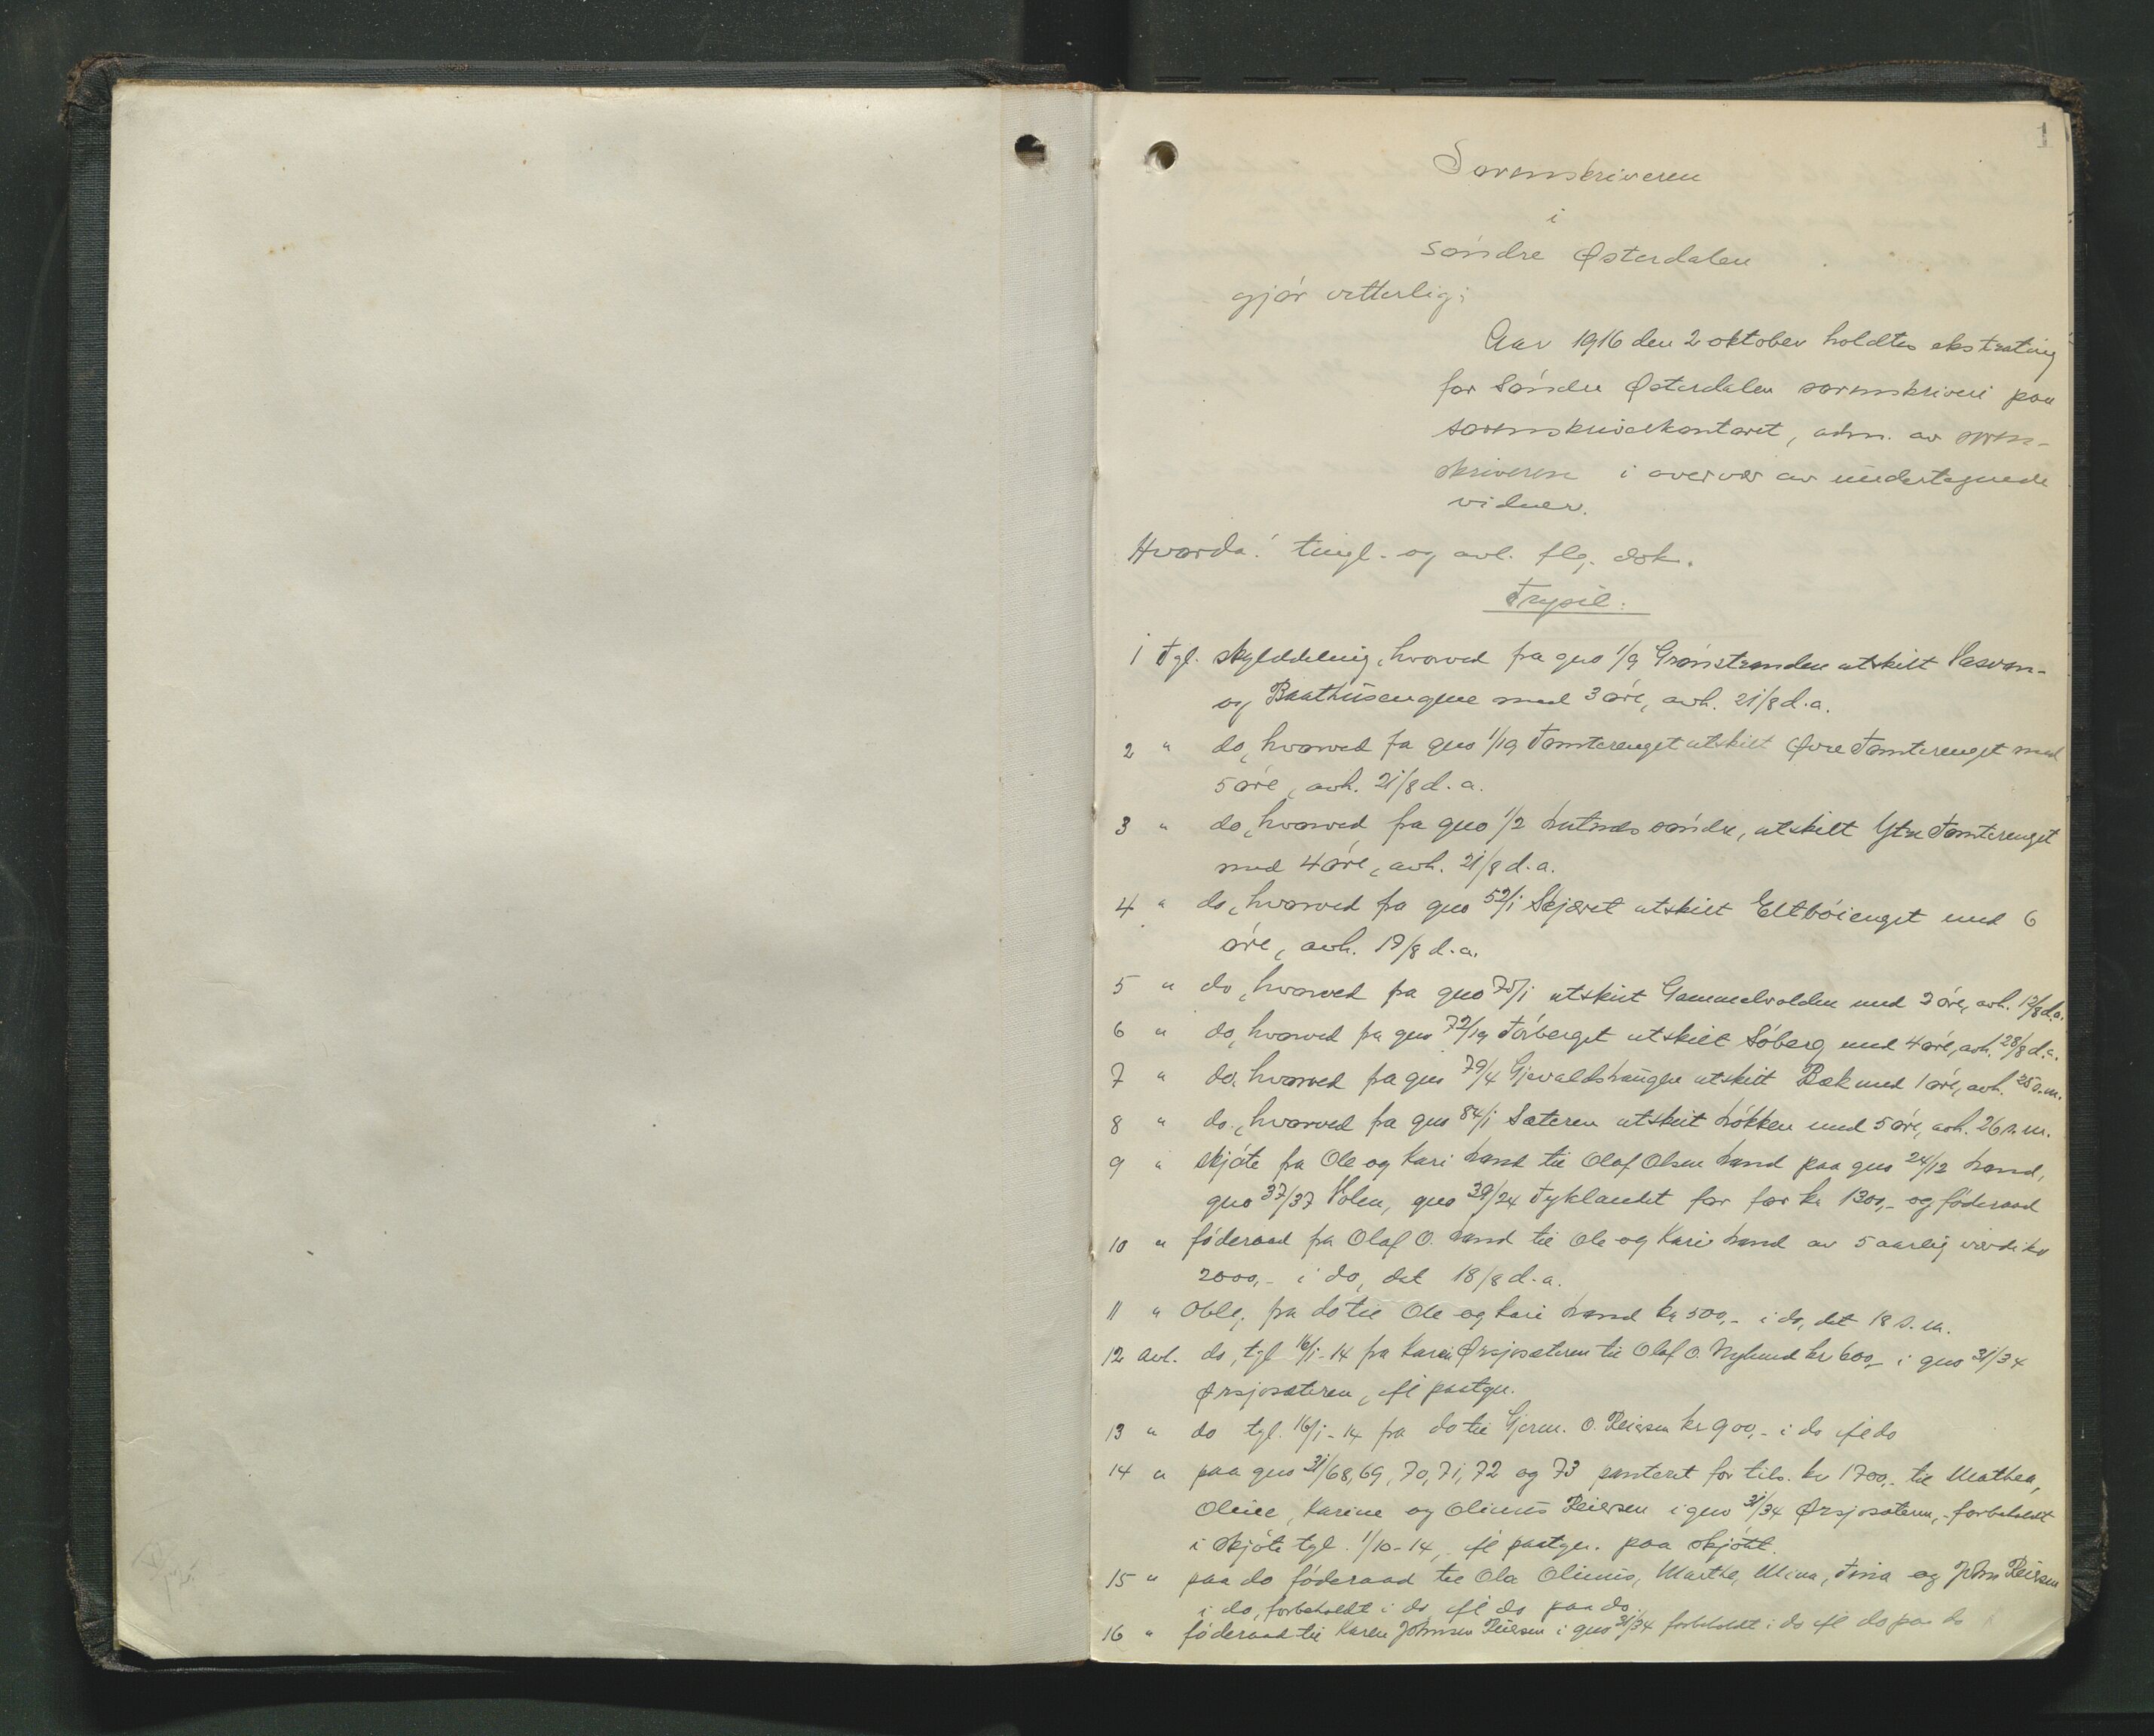 1
Sorenskriveren
i
Søndre Østerdalen
gjør vitterlig:
Aar 1916 den 2 oktober holdtes ekstrating
for Søndre Østerdalen sorenskriveri paa
sorenskriverkontoret, adm. av soren-
skriveren i overvær av undertegnede
vidner.
Hvorda: tingl. og avl. flg. dok.
Trysil:
1 Tgl. skylddeling, hvorved fra gno 1/9 Grønstranden utskilt
og Baathusengene med 3 øre, avh. 21/8 d.a.
2 " do, hvorved fra gno 1/19 Tomterenget utskilt Øvre Tomterenget med
5 øre, avh. 21/8 d.a.
3 " do, hvorved fra gno 1/2 Lutnes søndre, utskilt Ytre Tomterenget
med 4 øre, avh. 21/8 d.a.
4 " do, hvorved fra gno 52/1 Skjæret utskilt Eltbøienget med 6
øre, avh. 19/8 d.a.
5 " do, hvorved fra gno 75/1 utskilt Gammelvolden med 2 øre, avh. 12/8 d.a.
6 " do, hvorved fra gno 72/19 Tørberget utskilt Søberg med 4 øre, avh. 28/8 d.a.
7 " do, hvorved fra gno 79/4 Gjevaldshaugen utskilt Bæk med 1 øre, avh. 25 s.m.
8 " do., hvorved fra gno 84/1 Sæteren utskilt Løkken med 5 øre, avh. 26 s.m.
9 " skjøte fra Ole og Kari Land til Olaf Olsen Land paa gno 24/12 Land,
gno 37/37 Volen, gno 39/24 Tyklandet for for kr 1300,- og føderaad
10 " føderaad fra Olaf O. Land til Ole og Kari Land av 5 aarlig værdi kr
2000,- i do, dat 18/8 d.a.
11 " Obl. fra do til Ole og Kari Land kr 500,- i do, dat 18 s.m.
12 Avl. do, tgl 16/1-14 fra Karen Ørsjosæteren til Olaf O. Nylund kr 600,- i gno 31/34
Ørsjosæteren, ifl paategn.
13 " do tgl. 16/1-14 fra do til Gjerm. O. Reiersen kr 900,- i do ifl do
14 " paa gno 31/68, 69, 70, 71, 72 og 73 panteret for tils. kr 1700,- til Mathea,
Oline, Karine og Olinus Reiersen i gno 31/34 Ørsjosæteren, forbeholdt
i skjøte tgl. 1/10-14, ifl paategn. paa skjøtet.
15 " paa do føderaad til Ola Olinus, Marthe, Mina, Tina og John Reiersen
i do, forbeholdt i do ifl do paa do.
16 " føderaad til Karen Johnsen Reiersen i gno 31/34 forbeholdt i do ifl do paa do